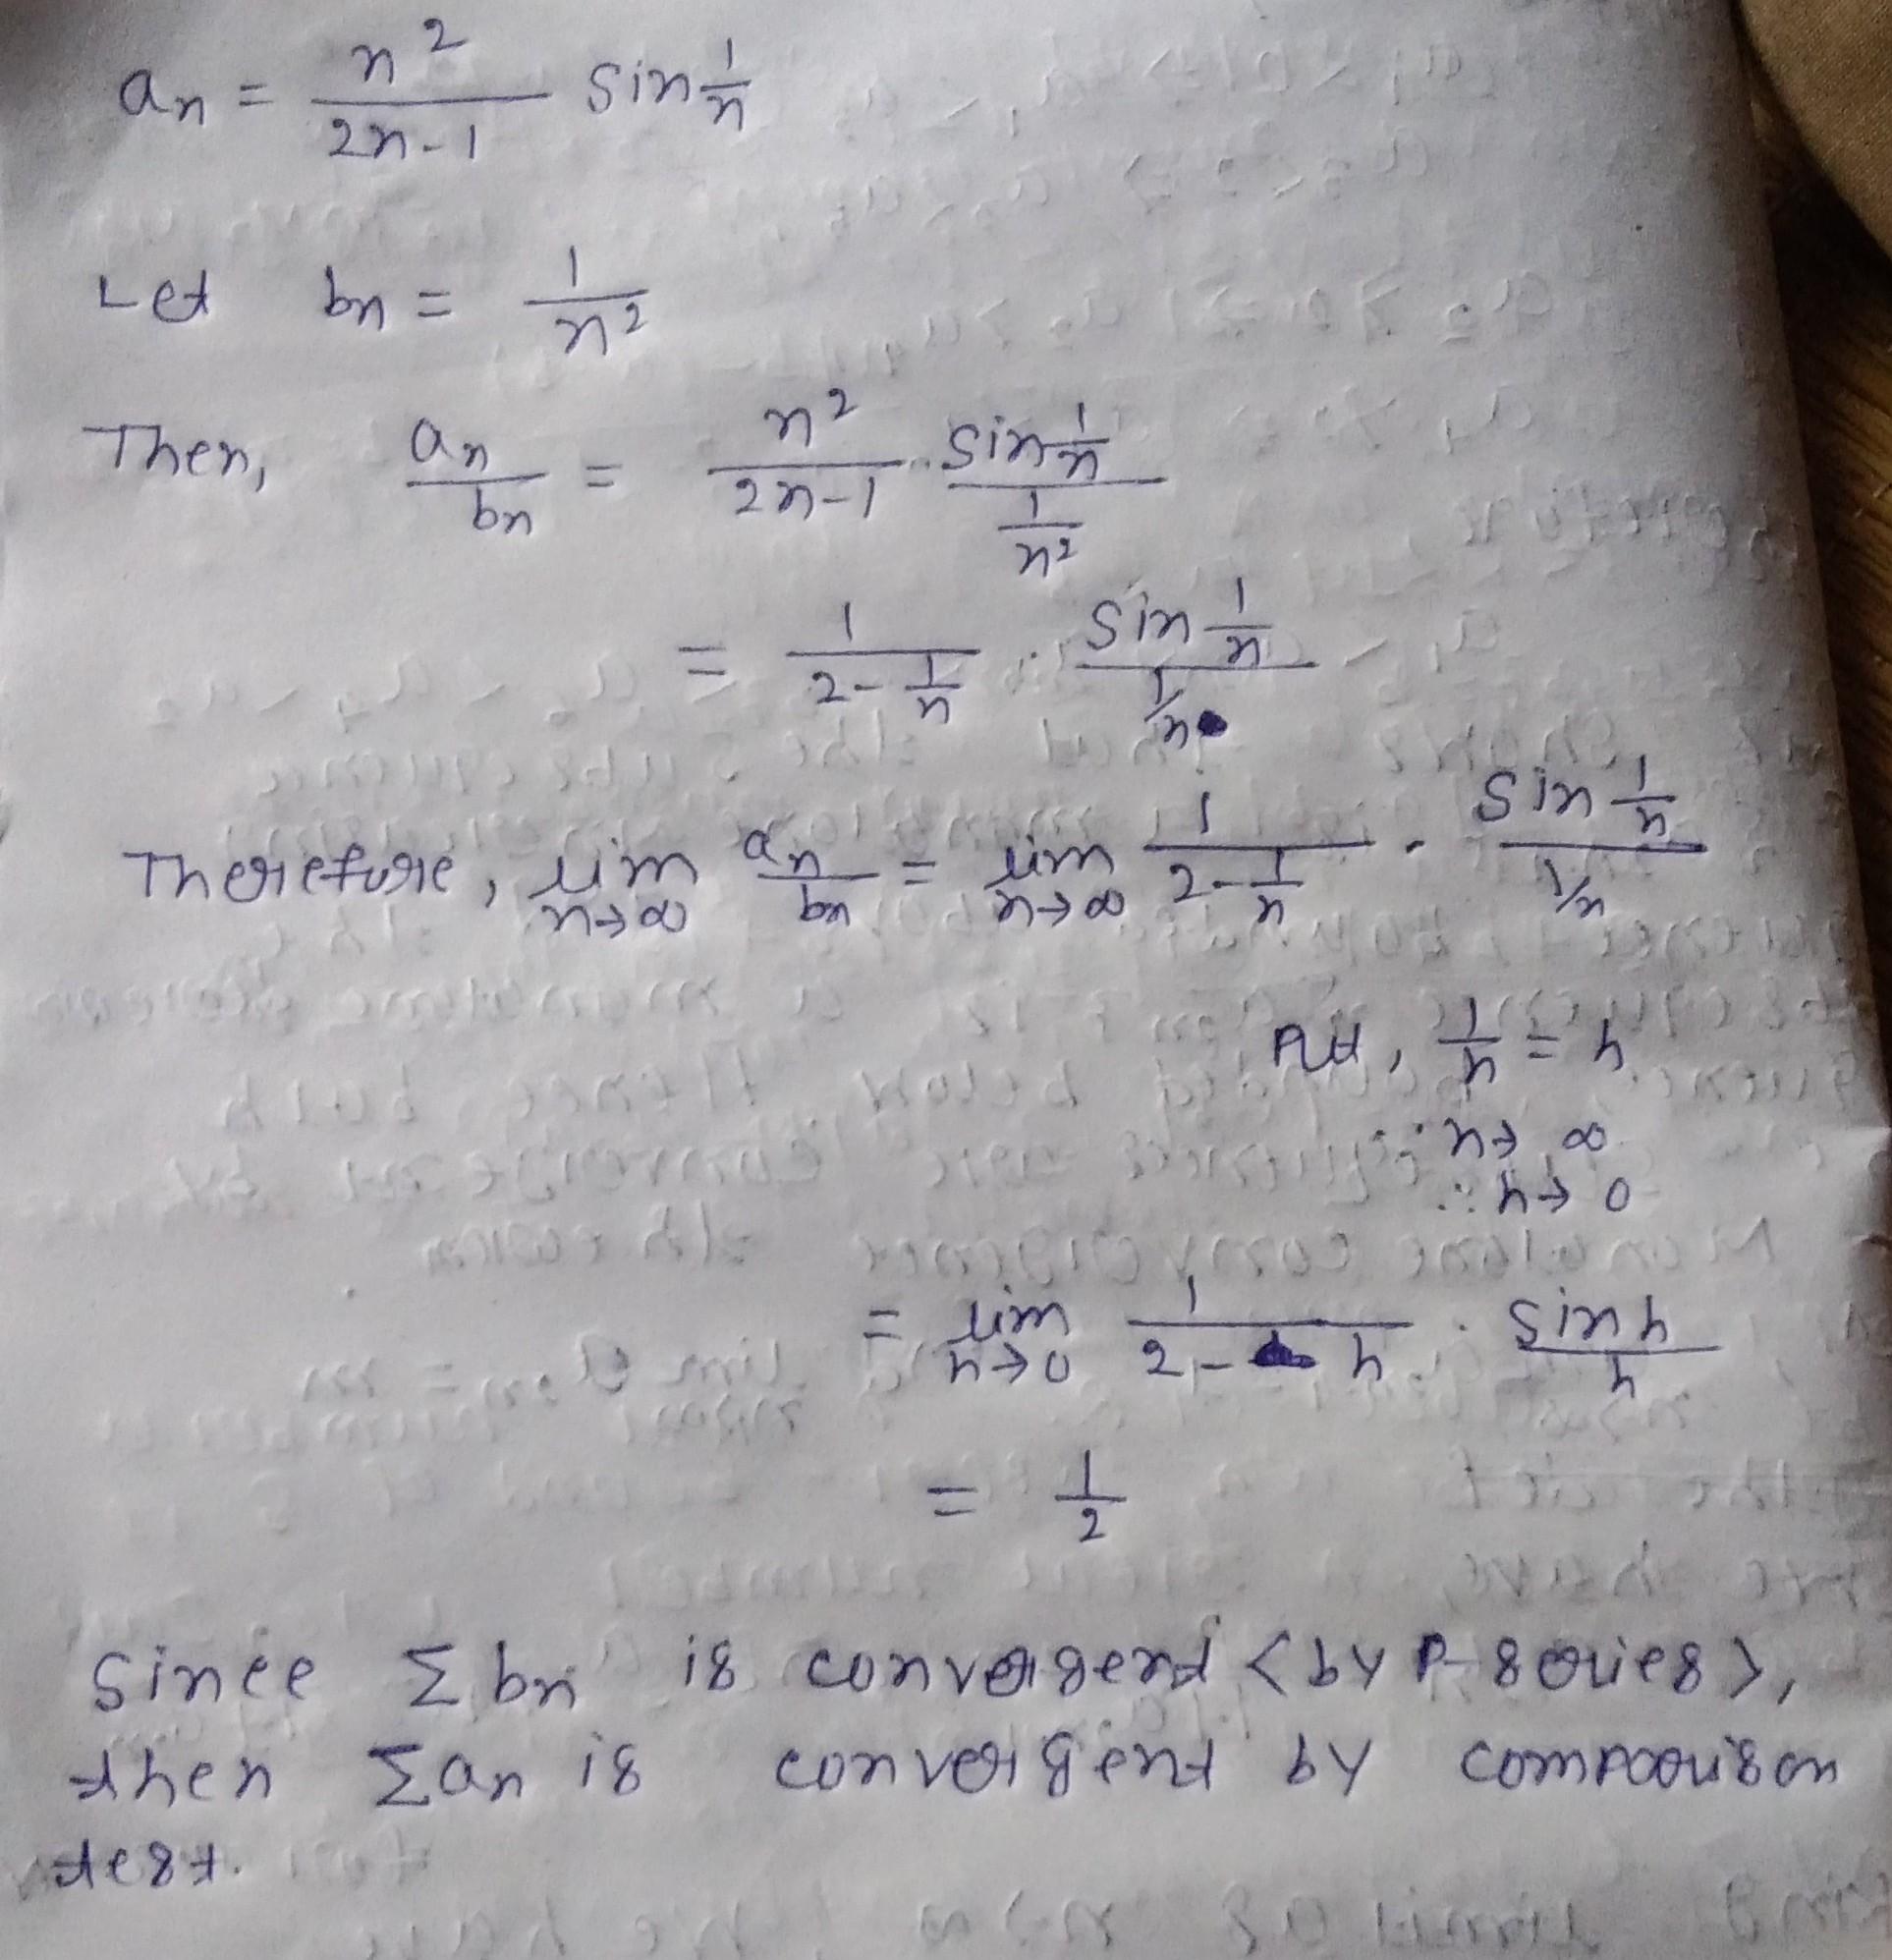 aₙ = n²/(2n-1) sin 1/n
Let bn = 1/n²
Then, an/bn = n²/(2n-1) · (sin 1/n)/(1/n²)
= 1/(2 - 1/n) · (sin 1/n)/(1/n)
Therefore, lim n→∞ an/bn = lim n→∞ 1/(2 - 1/n) · (sin 1/n)/(1/n)
Put, 1/n = h
∵ n→ ∞
∴ h→ 0
= lim h→0 1/(2 - h) · (sin h)/h
= 1/2
Since Σ bn is convergent <by P-series>,
then Σ an is convergent by comparison
test.